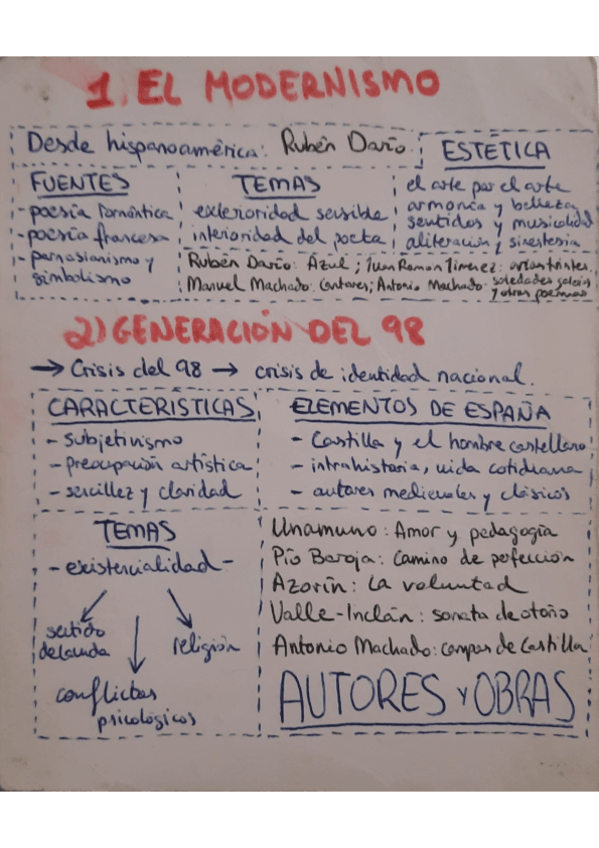 1. EL MODERNISMO
Desde hispanoamérica: Rubén Darío
ESTÉTICA
el arte por el arte
armonía y belleza
sentidos y musicalidad
aliteración y sinestesia
FUENTES
- poesía romántica
- poesía francesa
- parnasianismo y
simbolismo
TEMAS
exterioridad sensible
interioridad del poeta
Rubén Darío: Azul; Juan Ramon Jimenez: arias tristes.
Manuel Machado: Cantares; Antonio Machado: soledades galerías
y otras poemas
2) GENERACIÓN DEL 98
→ Crisis del 98 → crisis de identidad nacional.
CARACTERISTICAS
- subjetivismo
- preocupación artística
- sencillez y claridad
ELEMENTOS DE ESPAÑA
- Castilla y el hombre castellano
- intrahistoria, vida cotidiana
- autores medievales y clásicos
TEMAS
- existencialidad -
sentido
de la vida
religión
conflictos
psicológicos
Unamuno: Amor y pedagogía
Pío Baroja: Camino de perfección
Azorín: La voluntad
Valle-Inclán: sonata de otoño
Antonio Machado: campos de Castilla
AUTORES Y OBRAS